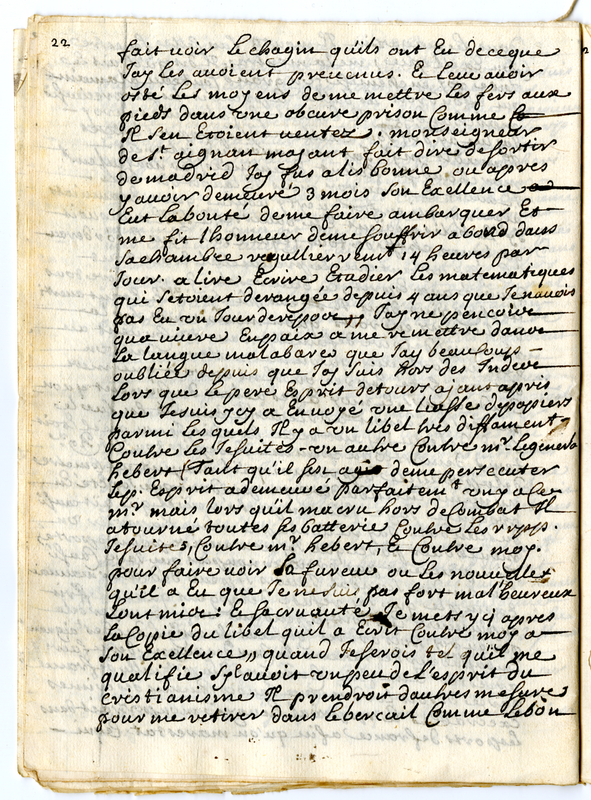 22
fait voir Le chagin quils ont Eu de ce que
Jay Les avoient prevenus. Et Leur avoir
osté Les moyens de me mettre Les fers aux
pieds dans une obcure prison Comme
Il sen Etoient ventez. monseigneur
de st. aignan mayant fait dire de sortir
de madrid Jay fus a lis bonne ou apres
y avoir demeuré 3 mois Son Exellence
Eut la bonté de me faire ambarquer Et
me fit lhonneur de me souffrir a bord dans
sa chambre regullierremt 14 heures par
Jour. a lire Ecrire Etadier Les matematiques
qui setoient derangée depuis 4 ans que Je navois
pas Eu un Jour de repos,, Jay ne pencoirs
qua vivre En paix a me remettre dans
La langue malabare que Jay beaucoup
oubliée depuis que Jay suis hors des Indes
Lors que le pere Esprit de tours ajant apris
que Je suis ycy a Envoyé une liasse dpapiers
parmi Les quels Il y a un libel tres difament
Contre Les Jesuites - un autre Contre mr. Le general
hebert (Tant qu'il s'est agis de me persecuter
Le p. Esprit a demeuré parfaitemt uny a Ce
mr. mais lors quil ma cru hors de Combat Il
a tourné toutes ses batterie Contre Les rrpp.
Jesuites, Contre mr hebert, Et Contre moy.
pour faire voir sa fureur ou Les nouvelles
qu'il a Eu que Je ne suis pas fort mal'heureux
Lont mise: Et sa cruauté Je mets ycy apres
La Copie du libel quil a Ecrit Contre moy a
Son Exellence,, quand Je serois tel qu'il me
qualifie Syl avoit un peu de L'esprit du
Cristianisme Il prendroit dautres mesures
pour me retirer dans Le bercail Comme Le bon